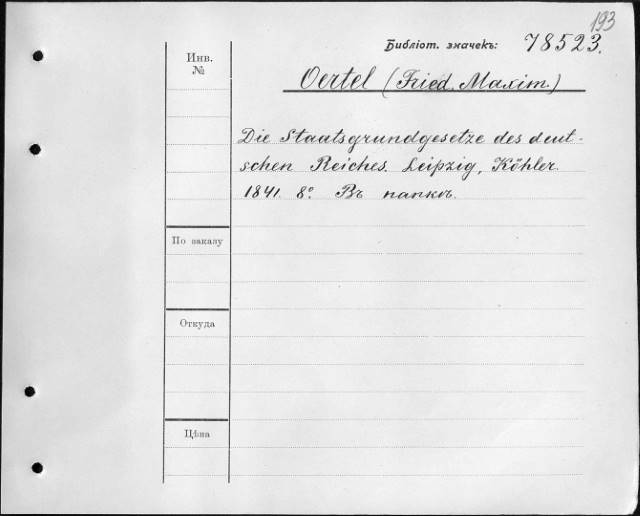 193
Библіот. значекъ: 78523.
Инв.
№
Oertel (Fried. Maxim.)
Die Staatsgrundgesetze des deut-
schen Reiches. Leipzig, Köhler
1841. 8°. Въ папкѣ.
По заказу
Откуда
Цѣна